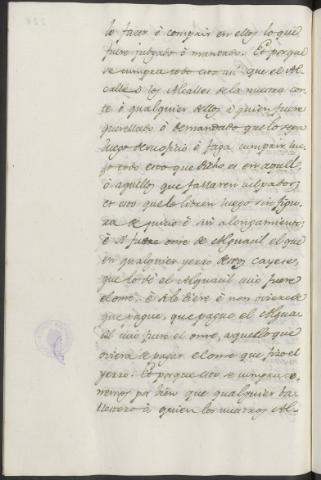 lo facer ó compair en ellos lo que
fuere juzgado ó mandado. Et porque
se cumpla todo esto así que el Al-
calle ó los Alcalles de la nuestra cor-
te ó qualquier dellos á quien fuere
querellado ó demandado que lo faga
luego de su oficio ó faga cumplir lue-
go todo esto que dicho es en aquell,
ó aquellos que fallaren culpados,
et esto que lo libren luego sin figu-
ra de juicio é sin alongamiento;
é si fuere ome de Alguacil el que
en qualquier yerro destos cayese,
que lo dé el Alguacil cuio fuere
el ome, é si lo diere é non oviere de
que pague, que pague el Algua-
cil cuio fuere el ome, aquello que
oviera de pagar el ome que fizo el
yerro. Et porque esto se cumpla te-
nemos por bien que qualquier ba-
llestero á quien los nuestros Al-